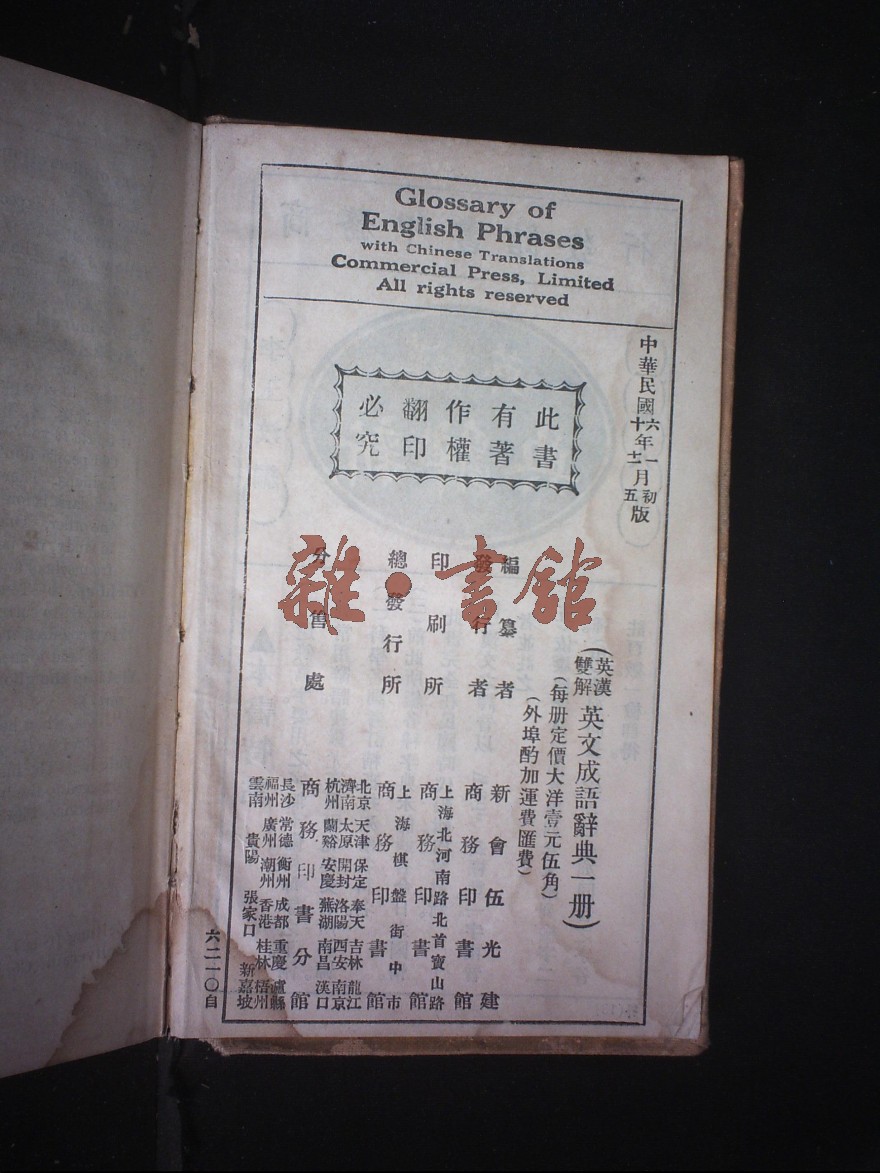 Glossary of
English Phrases
with Chinese Translations
Commercial Press, Limited
All rights reserved
中華民國六年一月初版
十年十二月五版
此書
有著
作權
翻印
必究
(英漢雙解英文成語辭典一册)
(每册定價大洋壹元伍角)
(外埠酌加運費匯費)
編纂者 新會伍光建
發行者 商務印書館
印刷所 上海北河南路北首寶山路
商務印書館
總發行所 上海棋盤街中市
商務印書館
分售處
北京 天津 保定 奉天 吉林 龍江
濟南 太原 開封 洛陽 西安 南京
杭州 蘭谿 安慶 蕪湖 南昌 漢口
商務印書分館
長沙 常德 衡州 成都 重慶 瀘縣
福州 廣州 潮州 香港 桂林 梧州
雲南 貴陽 張家口 新嘉坡
六二一〇自
雜·書館